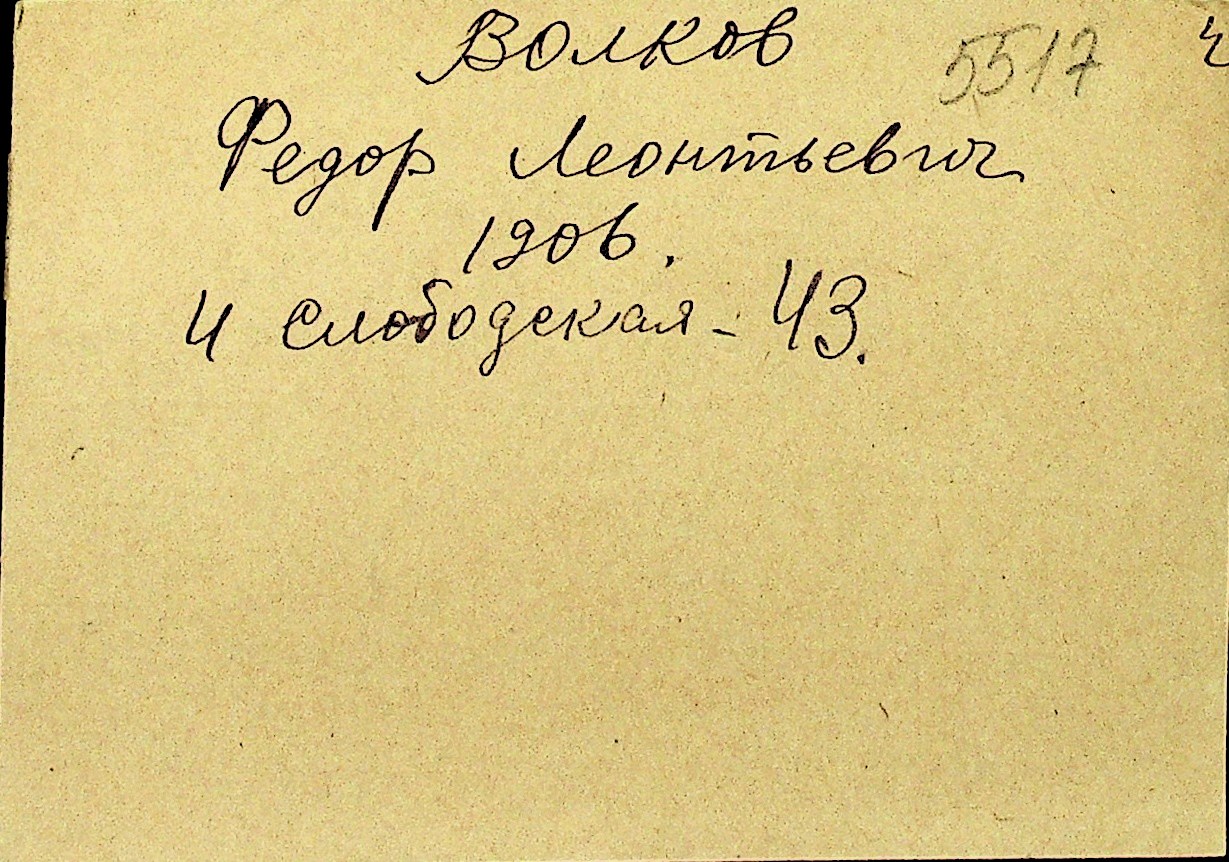 Волков 5517
Федор Леонтьевич
1906.
4 Слободская - 43.